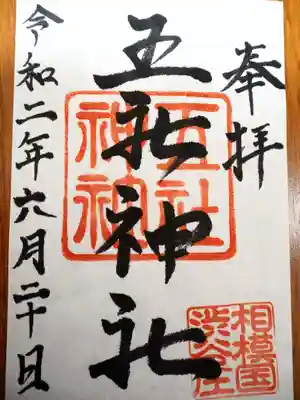 奉拝
五社神社
五社神社
相模国
渋谷庄
令和二年六月二十日